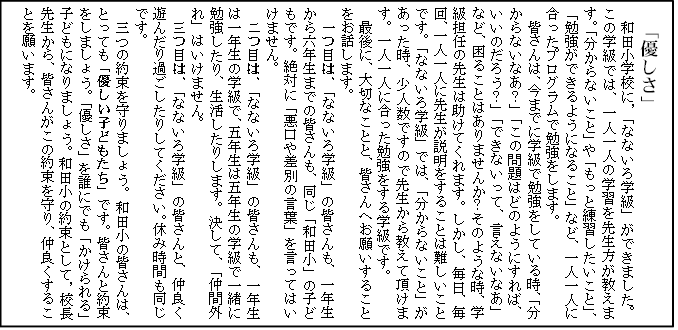 「優しさ」
　和田小学校に，「なないろ学級」ができました。
この学級では、一人一人の学習を先生方が教えま
す。「分からないこと」や「もっと練習したいこと」、
「勉強ができるようになること」など、一人一人に
合ったプログラムで勉強をします。
　皆さんは、今までに学級で勉強をしている時、「分
からないなあ？」「この問題はどのようにすれば、
いいのだろう？」「できないって、言えないなあ」
など、困ることはありませんか？そのような時、学
級担任の先生は助けてくれます。しかし、毎日、毎
回、一人一人に先生が説明をすることは難しいこと
です。「なないろ学級」では、「分からないこと」が
あった時、少人数ですので先生から教えて頂けま
す。一人一人に合った勉強をする学級です。
　最後に、大切なことと、皆さんへお願いすること
をお話します。
　一つ目は、「なないろ学級」の皆さんも、一年生
から六年生までの皆さんも、同じ「和田小」の子ど
もです。絶対に「悪口や差別の言葉」を言ってはい
けません。
　二つ目は、「なないろ学級」の皆さんも、一年生
は一年生の学級で、五年生は五年生の学級で一緒に
勉強したり、生活したりします。決して、「仲間外
れ」はいけません。
　三つ目は、「なないろ学級」の皆さんと、仲良く
遊んだり過ごしたりしてください。休み時間も同じ
です。
　三つの約束を守りましょう。和田小の皆さんは、
とっても「優しい子どもたち」です。皆さんと約束
をしましょう。「優しさ」を誰にでも「かけられる」
子どもになりましょう。和田小の約束として，校長
先生から、皆さんがこの約束を守り、仲良くするこ
とを願います。